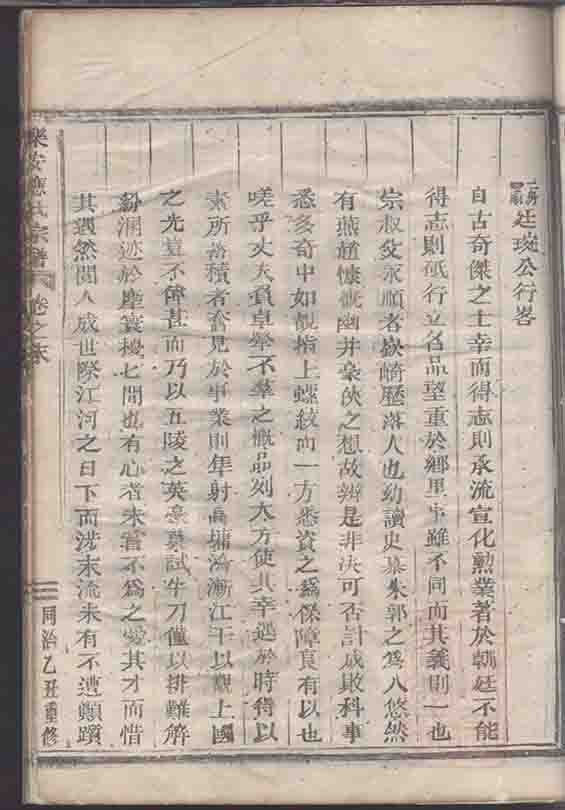 廷璇公行畧
自古奇傑之士幸而得志則承流宣化勲業著於朝廷不能
得志則砥行立名品望重於鄉里事雖不同而其義則一也
宗叔父永順者嶔崎歷落人也幼讀史慕朱郭之為人悠然
有燕趙慷慨幽并豪俠之想故辨是非決可否計成敗料事
悉多奇中如觀指上螺紋而一方悉資之為保障良有以也
嗟乎丈夫負卓犖不羣之概品列大方使其幸遇於時得以
素所蓄積者奮見於事業則年射高墉鴻漸江干以觀上國
之先豈不偉甚而乃以五陵之英豪慕試牛刀僅以排難解
紛溷迹於塵寰間也有心者未嘗不為之愛其才而惜
其遇然閱人成世際江河之日下而流末流未有不遭顛躓
樂安應氏宗譜
卷之末
同治乙丑重修